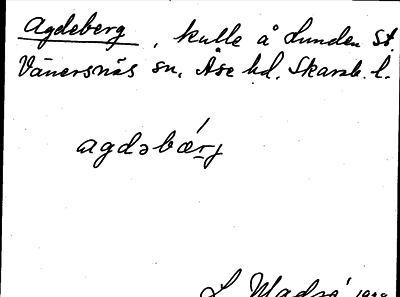 Agdeberg, kulle å Lunden St.
Vänersnäs sn. Åse hd. Skarab. l.
agdəbær̲j